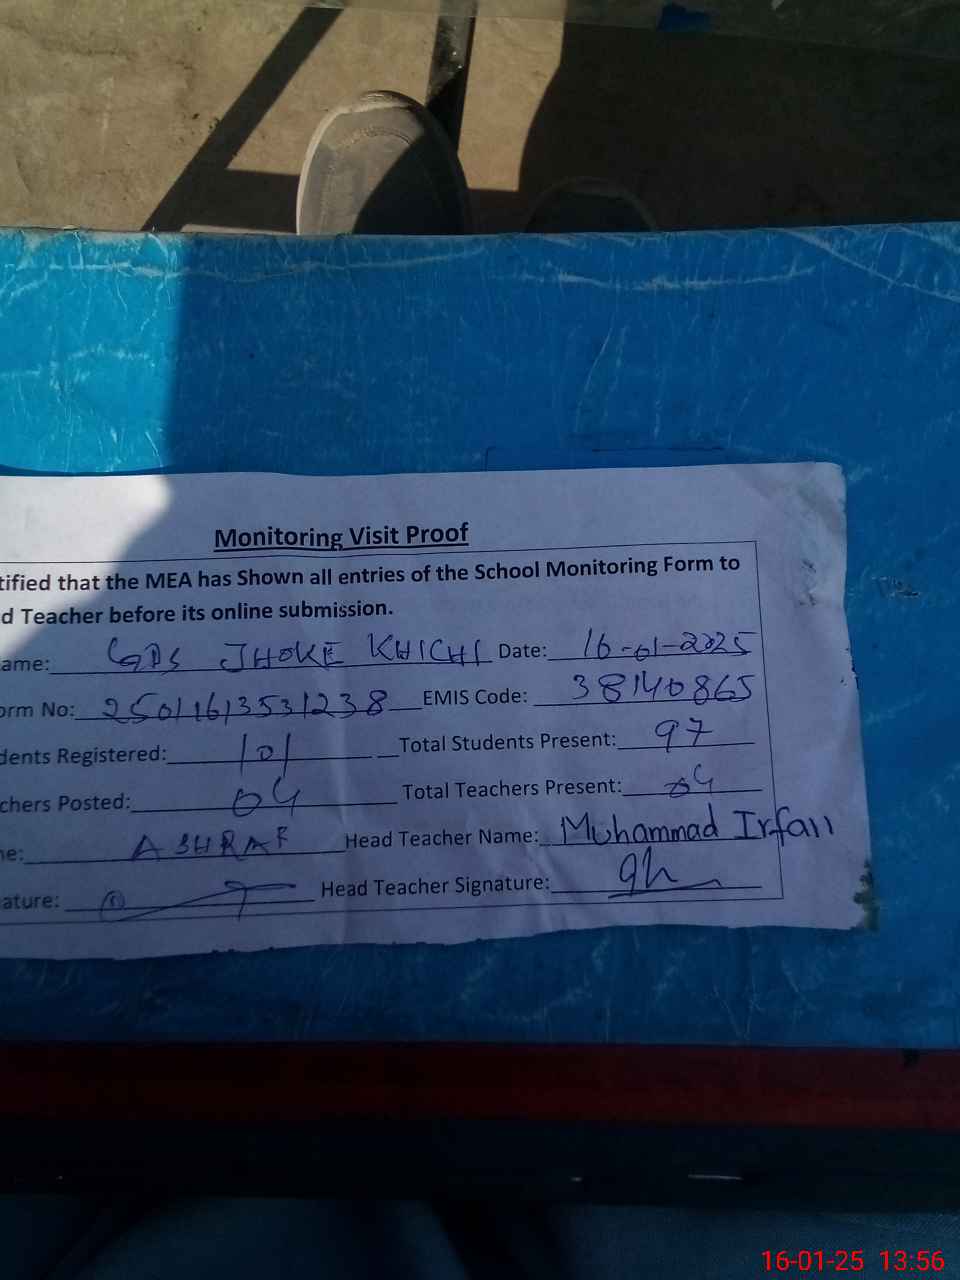 Monitoring Visit Proof
tified that the MEA has Shown all entries of the School Monitoring Form to
d Teacher before its online submission.
ame: GPS JHOKE KHICHI Date: 16-01-2025
orm No: 2501161353​1238 EMIS Code: 38140865
dents Registered: 101 Total Students Present: 97
chers Posted: 04 Total Teachers Present: 04
ne: ASHRAF Head Teacher Name: Muhammad Irfan
ature: Head Teacher Signature:
16-01-25 13:56